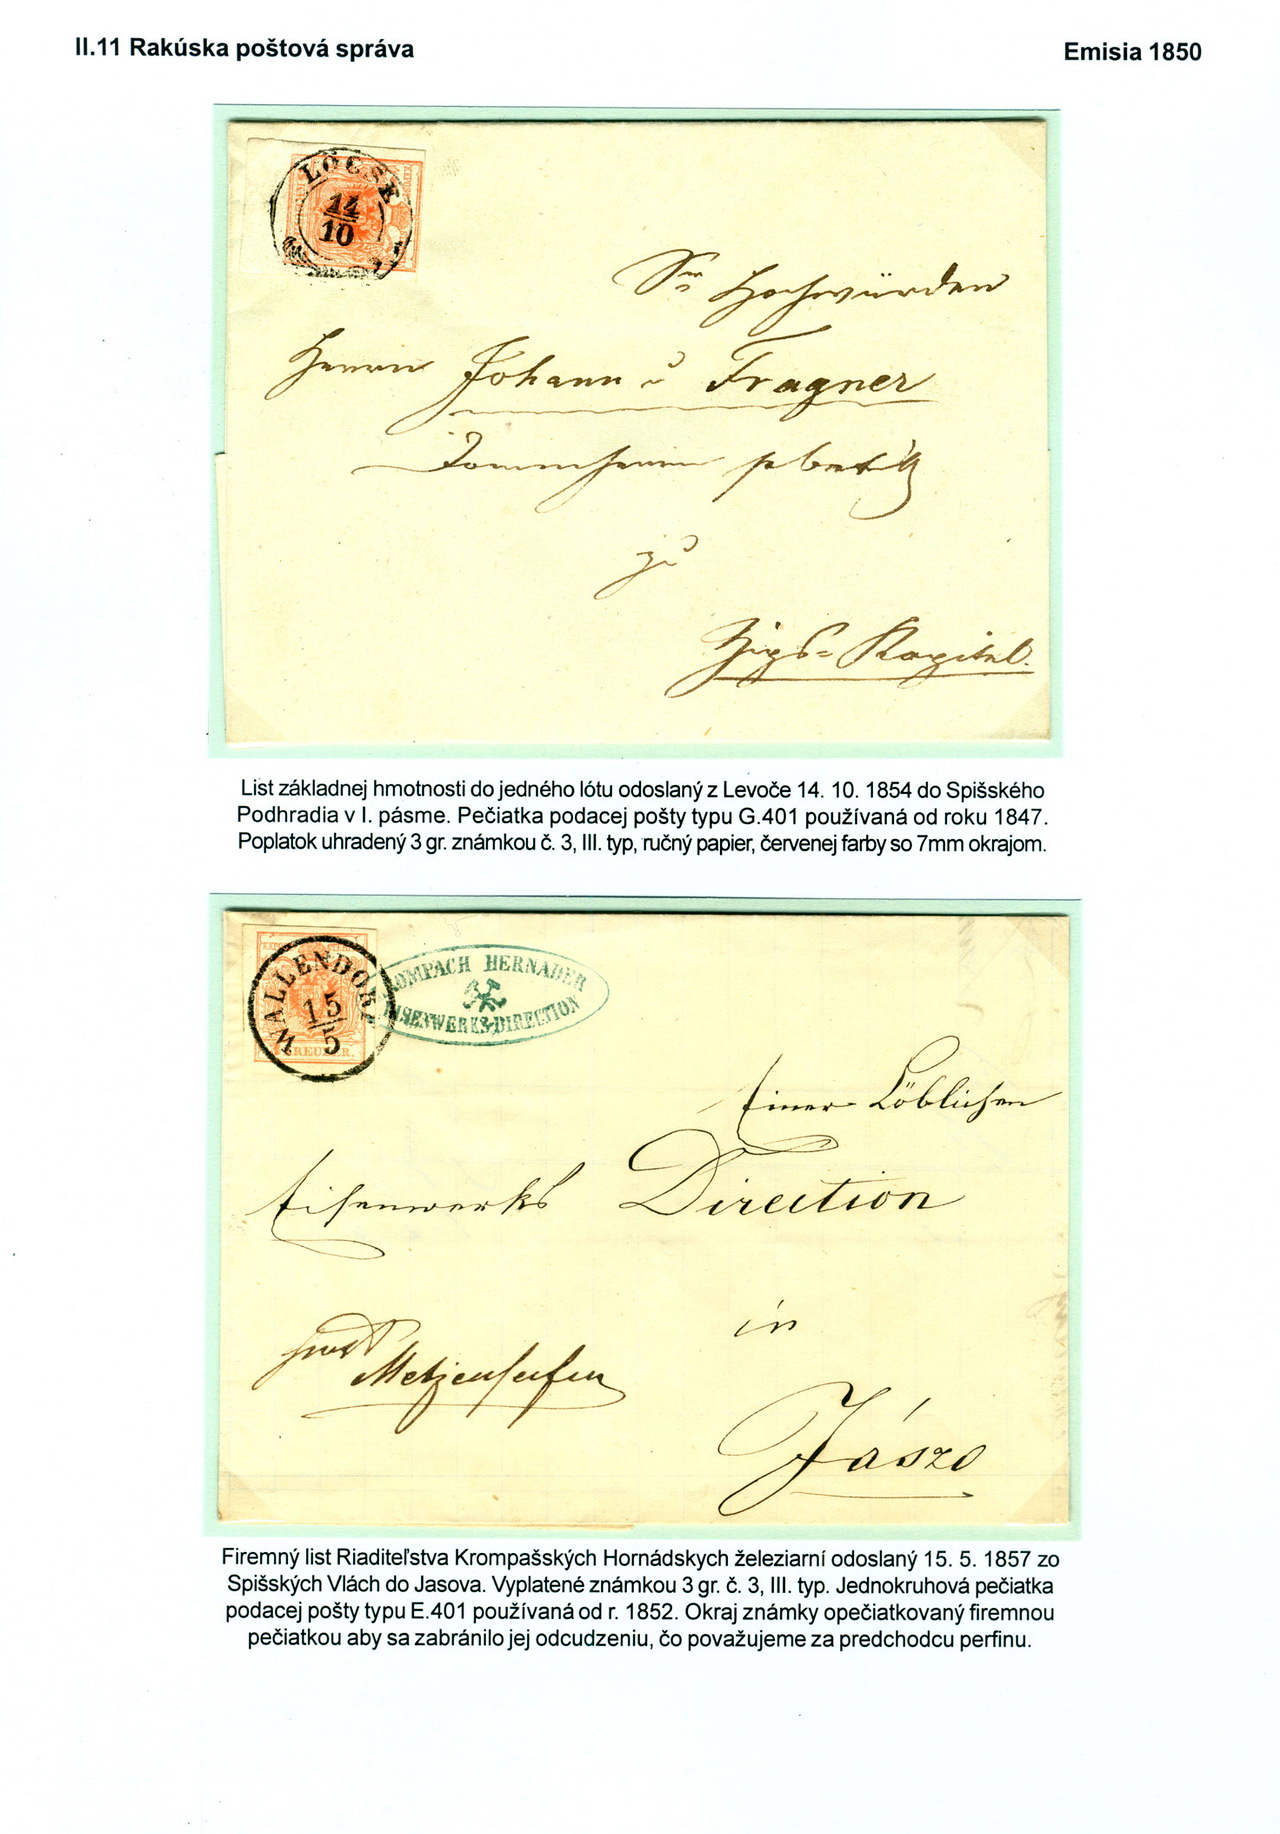 II.11 Rakúska poštová správa
Emisia 1850
LÖCSE
14
10
Sr Hochwürden
Herrn Johann v Fragner
Domherrn
zu
Zips=Kapitel.
List základnej hmotnosti do jedného lótu odoslaný z Levoče 14. 10. 1854 do Spišského
Podhradia v I. pásme. Pečiatka podacej pošty typu G.401 používaná od roku 1847.
Poplatok uhradený 3 gr. známkou č. 3, III. typ, ručný papier, červenej farby so 7mm okrajom.
WALLENDORF
15
5
KREUZER.
KROMPACH HERNADER
EISENWERKS-DIRECTION
Einer Löblichen
Eisenwerks Direction
in
Metzenseifen
Jászo
Firemný list Riaditeľstva Krompašských Hornádskych železiarní odoslaný 15. 5. 1857 zo
Spišských Vlách do Jasova. Vyplatené známkou 3 gr. č. 3, III. typ. Jednokruhová pečiatka
podacej pošty typu E.401 používaná od r. 1852. Okraj známky opečiatkovaný firemnou
pečiatkou aby sa zabránilo jej odcudzeniu, čo považujeme za predchodcu perfinu.